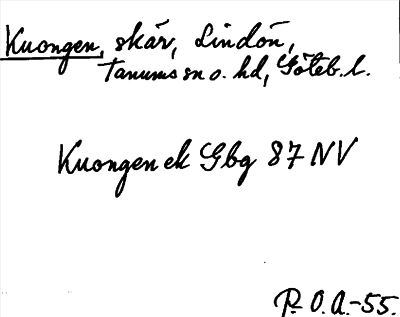 Kuongen, skär, Lindön,
Tanums sn o. hd, Göteb. l.
Kuongen ek Gbg 87 NV
P. O.A.-55.